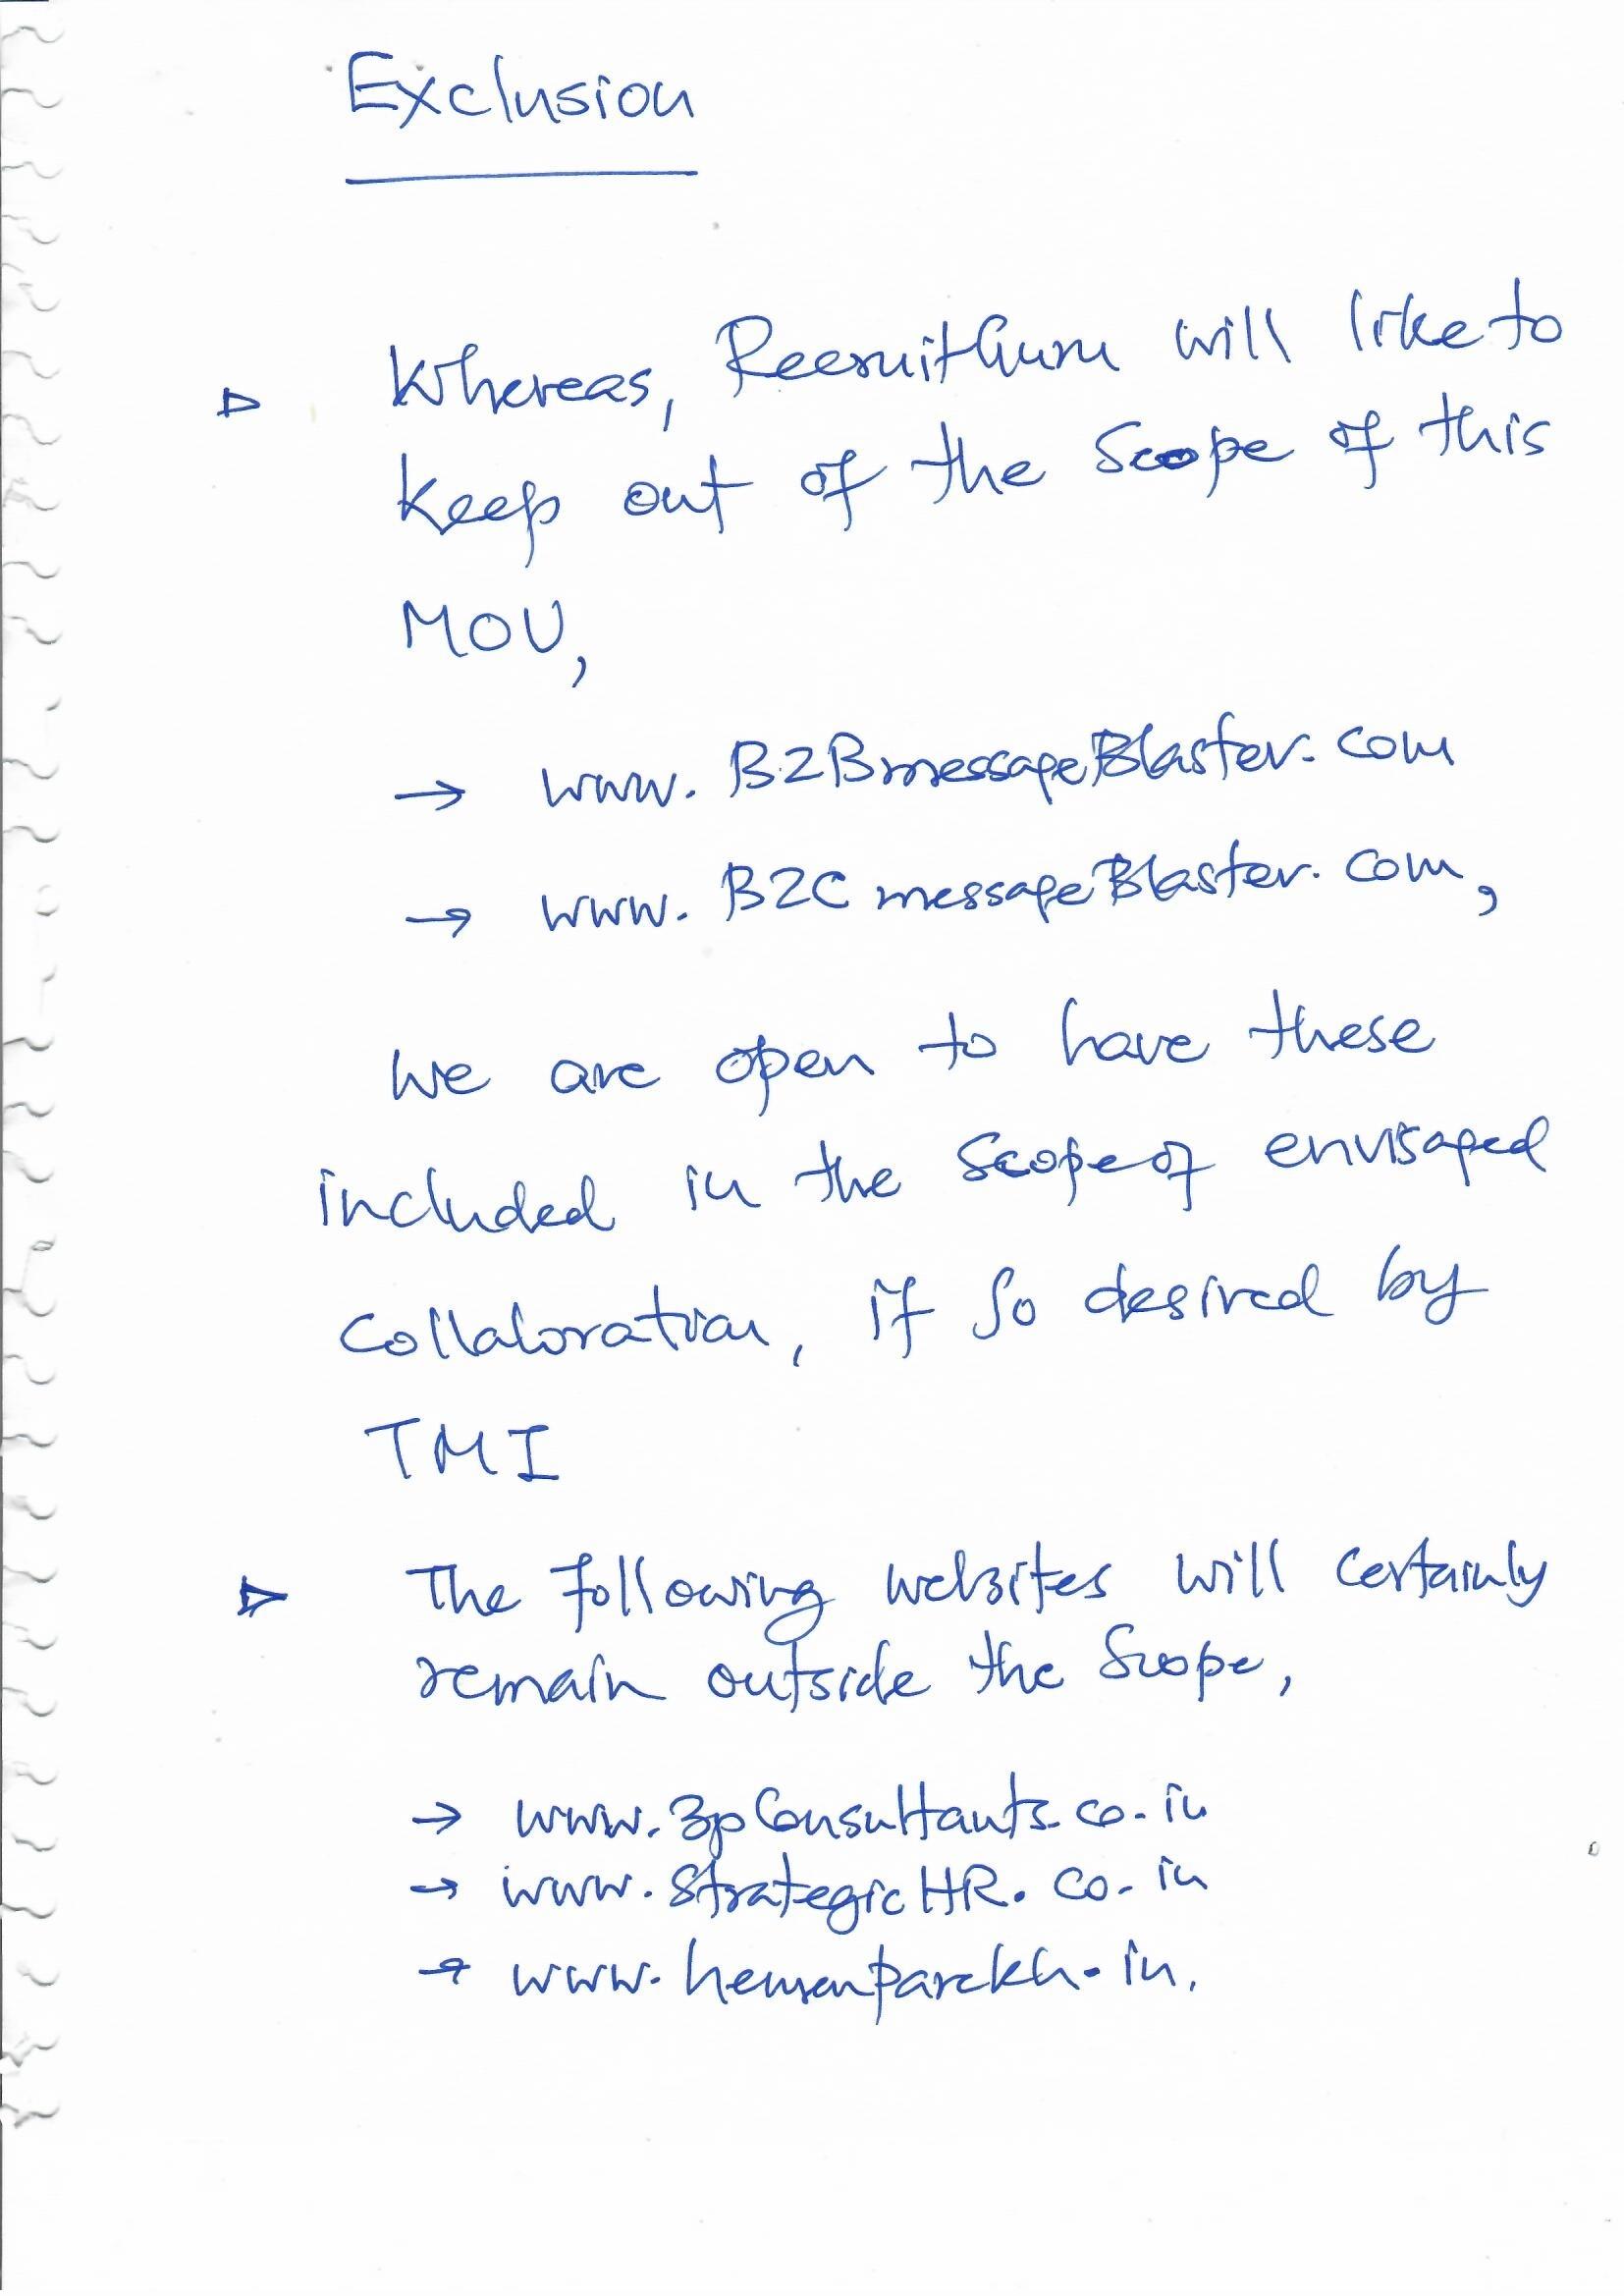 Exclusion
Whereas, RecruitGuru will like to
keep out of the Scope of this
MOU,
→ www. B2BmessageBlaster. com
→ www. B2C messageBlaster. com,
We are open to have these
included in the Scope of envisaged
Collaboration, if so desired by
TMI
The following websites will certainly
remain outside the Scope,
→ www. 3pConsultants. co. in
→ www. StrategicHR. co. in
→ www. hemenparekh. in.